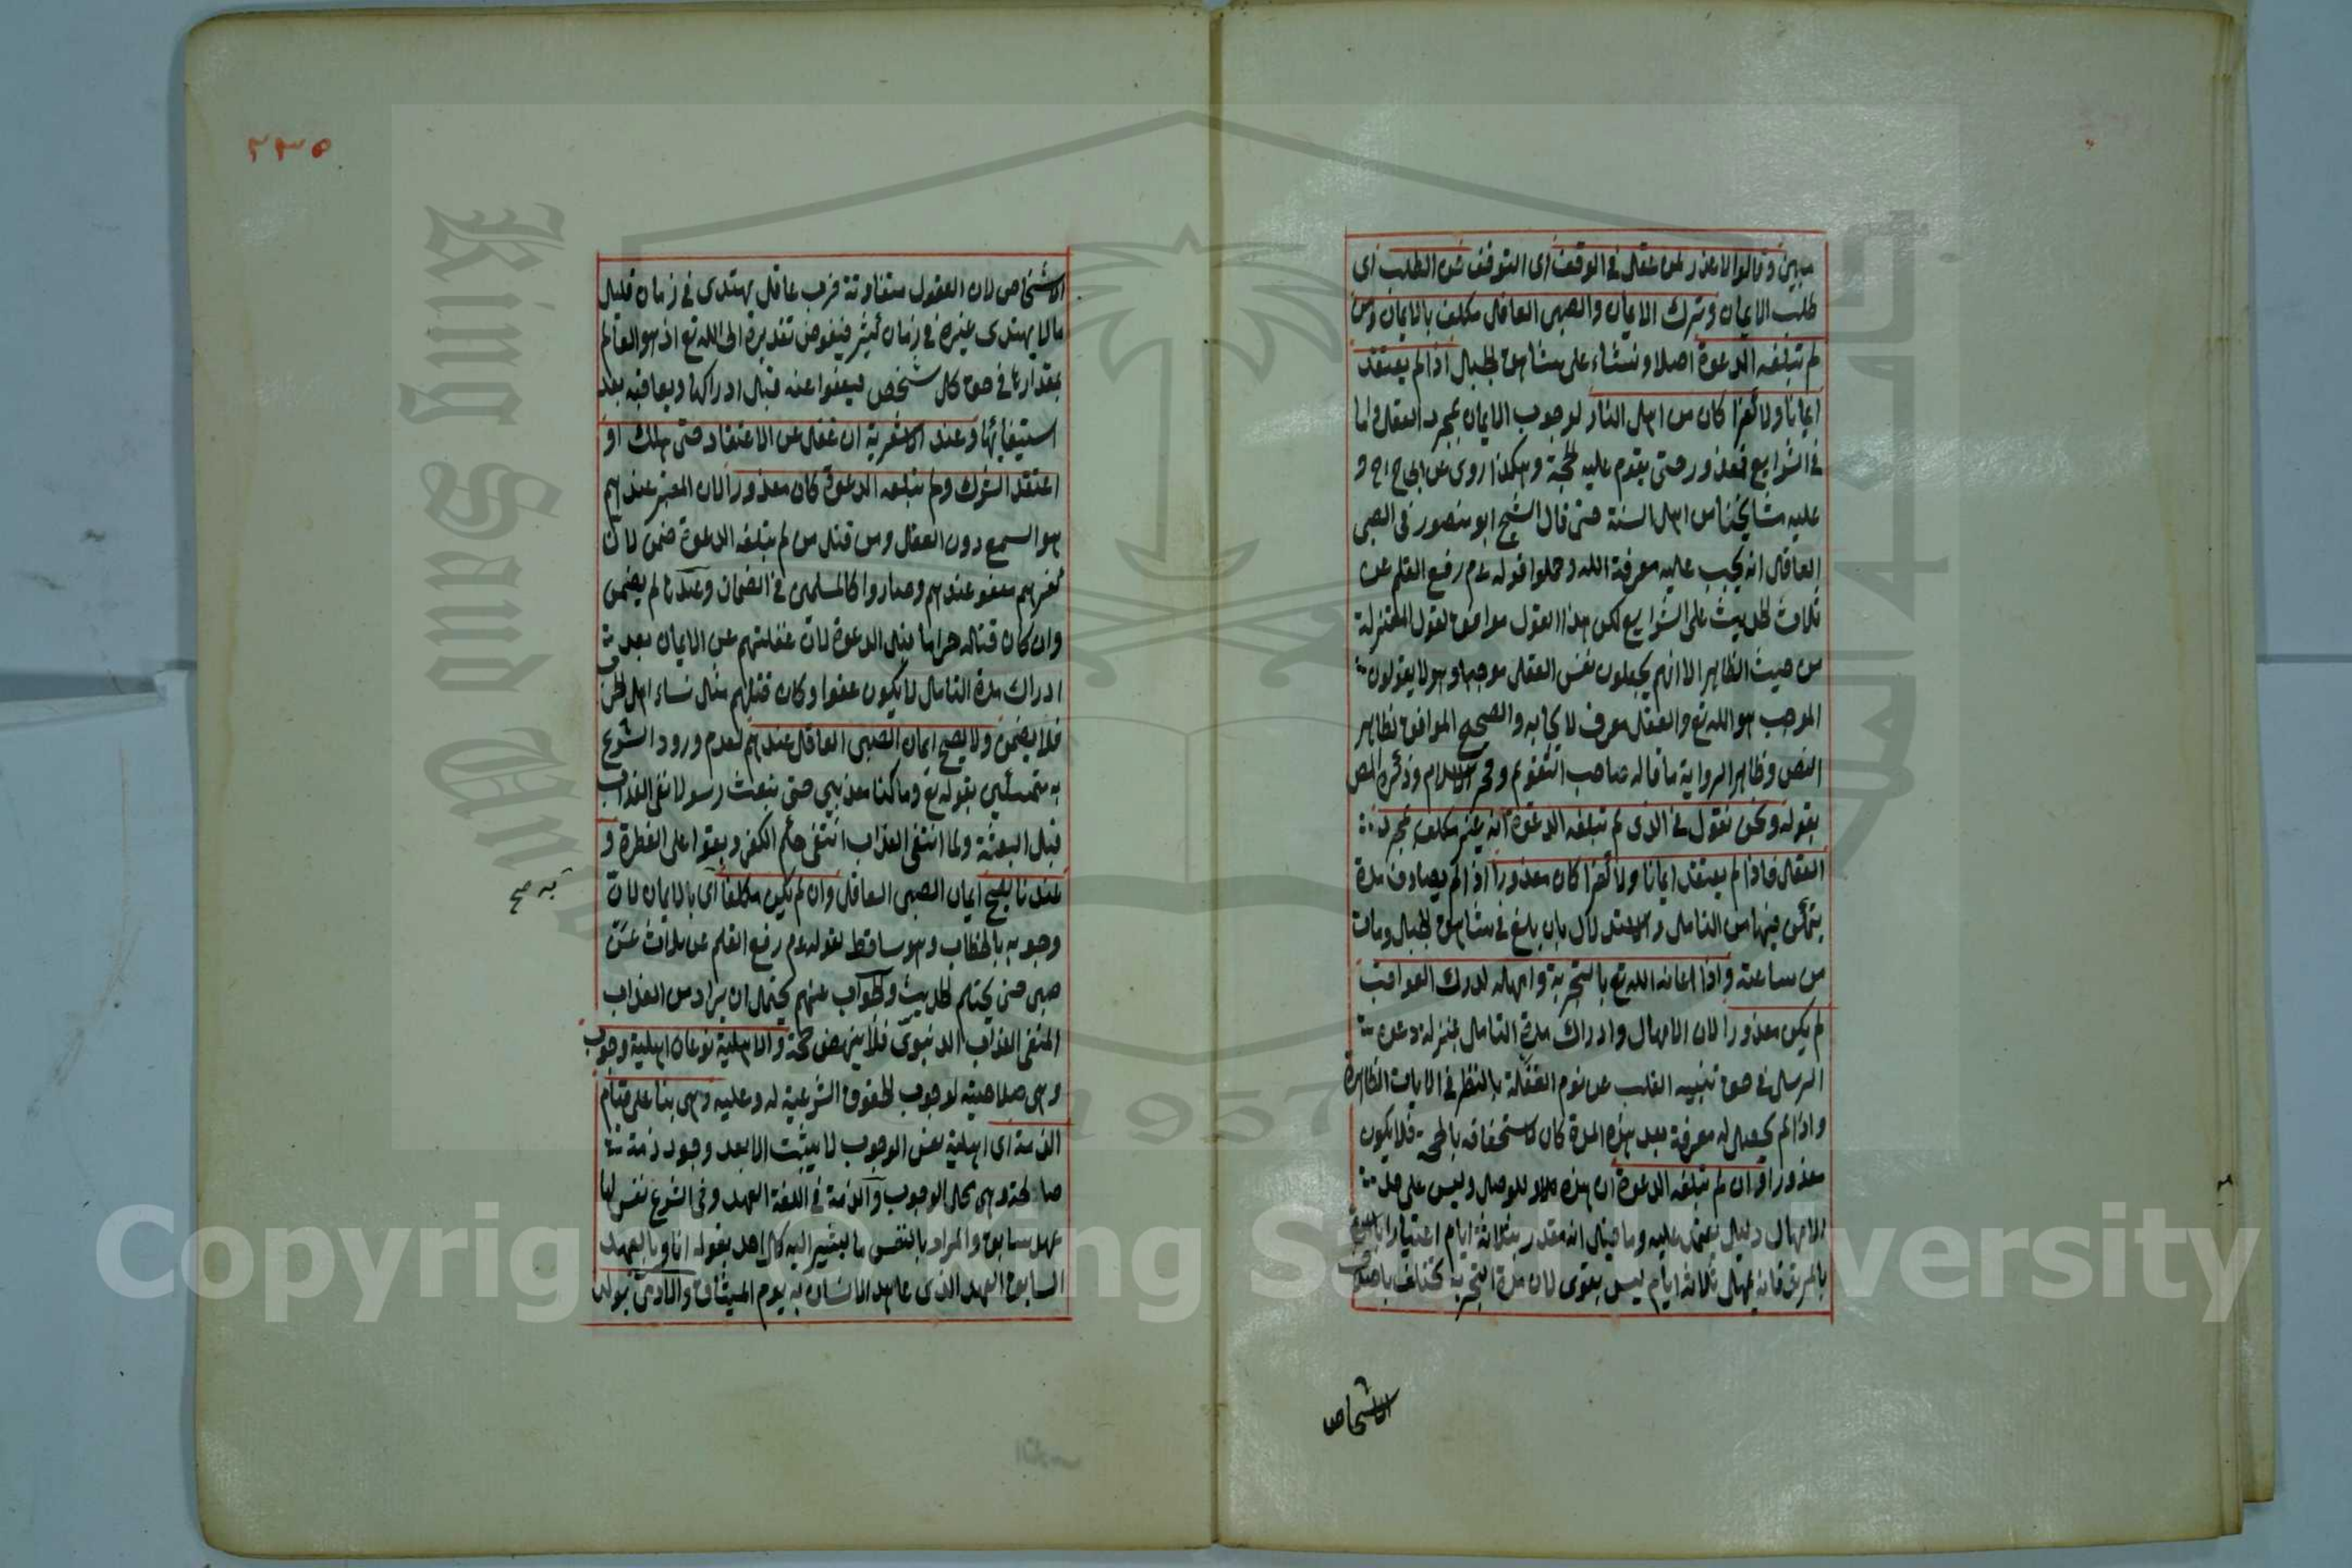 مبهين وقالوا لا عذر لمن عقل في الوقف اى التوقف عن الطلب اى
طلب الايمان وترك الايمان والصبى العاقل مكلف بالايمان ومن
لم تبلغه الدعوة اصلا ونشاء على شاهق الجبال اذا لم يعتقد
ايمانا ولا كفرا كان من اهل النار لوجوب الايمان بمجرد العقل واما
في الشرايع فمعذور حتى يقوم عليه الحجة وهكذا روى عن ابى ح رح و
عليه مشايخنا من اهل السنة حتى قال الشيخ ابو منصور في الصبى
العاقل انه يجب عليه معرفة الله وحملوا قوله عم رفع القلم عن
ثلاث الحديث على الشرايع لكن هذا القول موافق لقول المعتزلة
من حيث الظاهر الا انهم يجعلون نفس العقل موجبا وهو لا يقولون
الموجب هو الله تع والعقل معرف لايجابه والصحيح الموافق لظاهر
النص وظاهر الرواية ما قاله صاحب التقويم وفخر الاسلام وذكره المص
بقوله ونحن نقول في الذى لم تبلغه الدعوة انه غير مكلف بمجرد
العقل فاذا لم يعتقد ايمانا ولا كفرا كان معذورا اذا لم يصادف مدة
يتمكن فيها من التامل والاستدلال بان بلغ في شاهق الجبال ومات
من ساعته واذا اعانه الله تع بالتجربة وامهله لدرك العواقب
لم يكن معذورا لان الامهال وادراك مدة التامل بمنزلة دعوة
الرسل في حق تنبيه القلب عن نوم الغفلة بالنظر في الايات الظاهرة
واذا لم يحصل له معرفة بعد هذه المدة كان لاستخفافه بالحجة فلا يكون
معذورا وان لم تبلغه الدعوة ان هذه للوصل وليس على حد
الامهال دليل يعتمد عليه وما قيل انه مقدر بثلاثة ايام اعتبارا
بالمرتد فانه يمهل ثلاثة ايام ليس بقوى لان مدة التجربة تختلف باختلاف
الاشخاص
٢٣٥
الاشخاص لان العقول متفاوتة فرب عاقل يهتدى في زمان قليل
ما لا يهتدى غيره في زمان كثير فيفوض تقديره الى الله تع اذ هو العالم
بمقدارها في حق كل شخص فيعفوا عنه قبل ادراكها ويعاقبه بعد
استيفائها وعند الاشعرية ان غفل عن الاعتقاد حتى هلك او
اعتقد الشرك ولم تبلغه الدعوة كان معذورا لان المعتبر عندهم
هو السمع دون العقل ومن قتل من لم تبلغه الدعوة ضمن لان
كفرهم معفو عندهم وصاروا كالمسلمين في الضمان وعندنا لم يضمن
وان كان قتله حراما قبل الدعوة لان غفلتهم عن الايمان بعد
ادراك مدة التامل لا يكون عفوا وكان قتلهم مثل نساء اهل الحرب
فلا يضمن ولا يصح ايمان الصبى العاقل عندهم لعدم ورود الشرع
به متمسكين بقوله تع وما كنا معذبين حتى نبعث رسولا نفى العذاب
قبل البعثة ولما انتفى العذاب انتفى حكم الكفر وبقوا على الفطرة و
عندنا يصح ايمان الصبى العاقل وان لم يكن مكلفا اى بالايمان لان
به صح
وجوبه بالخطاب وهو ساقط لقوله عم رفع القلم عن ثلاث عن
صبى حتى يحتلم الحديث والجواب عنهم يحتمل ان يراد من العذاب
المنفى العذاب الدنيوى فلا ينهض حجة والاهلية نوعان اهلية وجوب
وهى صلاحيته لوجوب الحقوق الشرعية له وعليه وهى بناء على قيام
الذمة اى اهلية نفس الوجوب لا يثبت الا بعد وجود ذمة
صالحة وهى محل الوجوب والذمة في اللغة العهد وفى الشرع نفس لها
عهد سابق والمراد بالنفس ما يشير اليه كل احد بقوله انا وبالعهد
السابق العهد الذى عاهد الانسان به يوم الميثاق والآدمى يولد